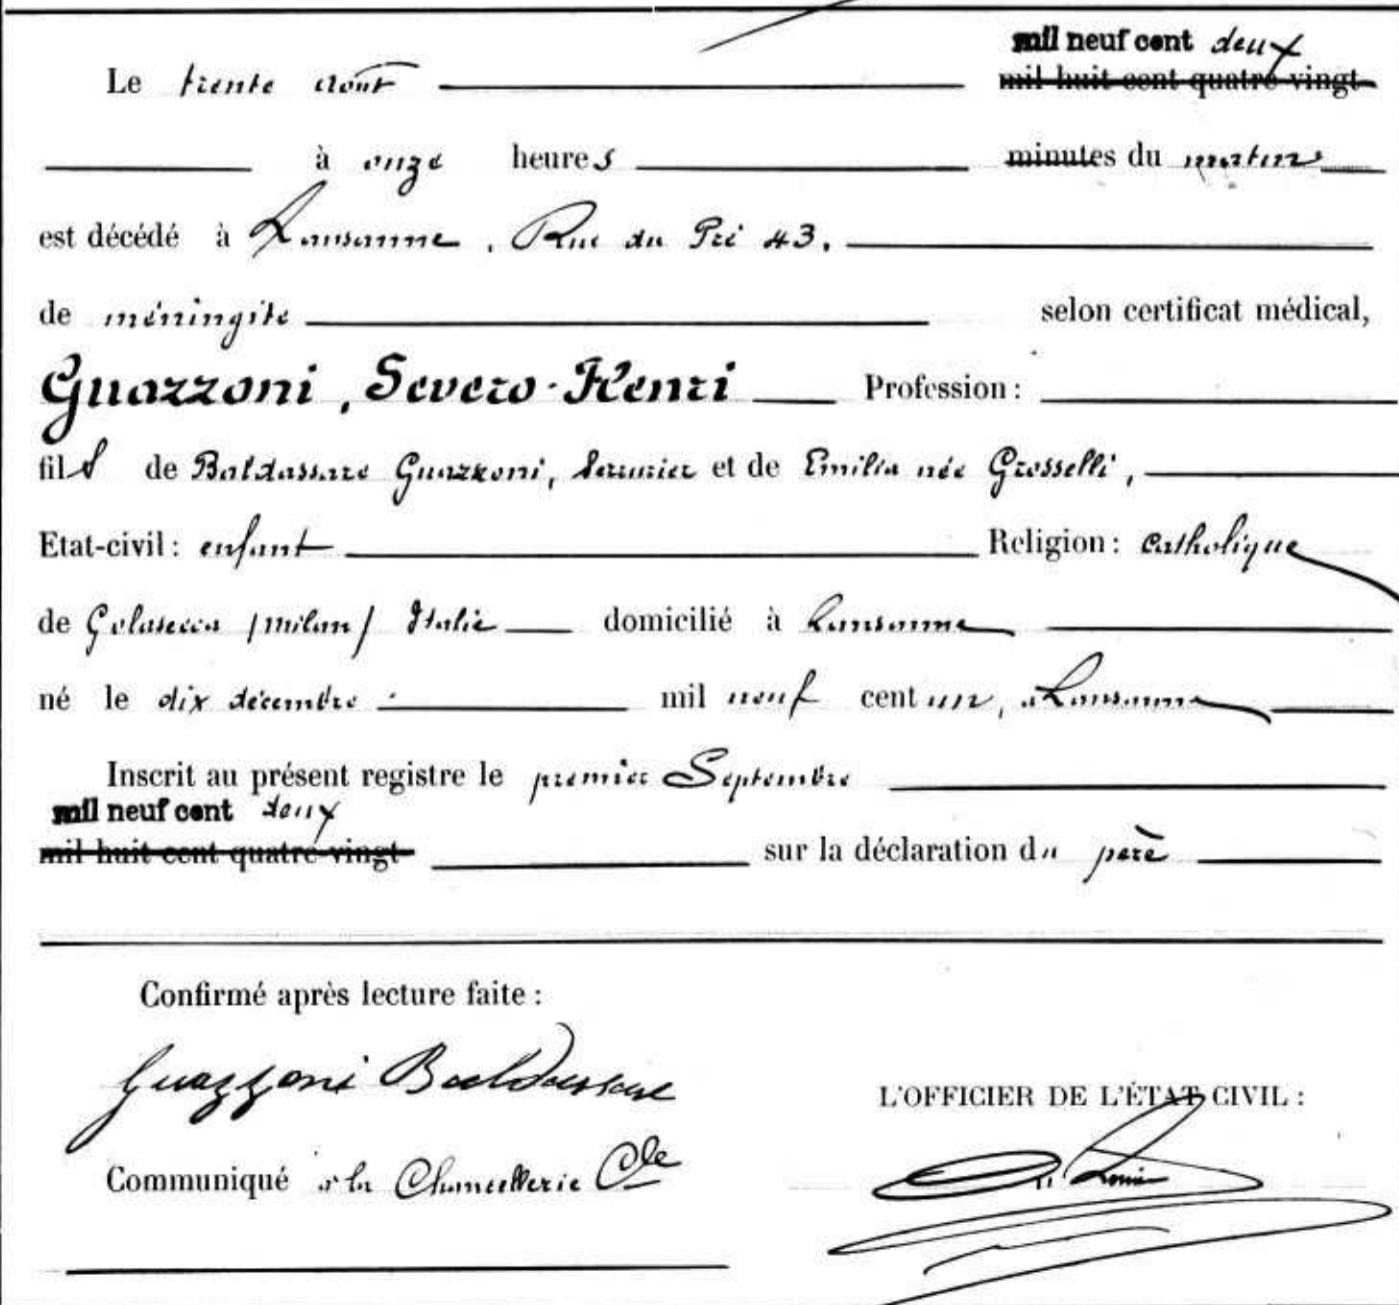 mil neuf cent deux
Le trente août mil huit cent quatre-vingt
à onze heures minutes du matin
est décédé à Lausanne, Rue du Pré 43,
de méningite selon certificat médical,
Guazzoni, Severo-Henri Profession :
fils de Baldassare Guazzoni, serrurier et de Emilia née Grosselli,
Etat-civil : enfant Religion : catholique
de Golasecca /Milan/ Italie domicilié à Lausanne
né le dix décembre mil neuf cent un, à Lausanne
Inscrit au présent registre le premier Septembre
mil neuf cent deux
mil huit cent quatre-vingt sur la déclaration du père
Confirmé après lecture faite :
Guazzoni Baldassare
L'OFFICIER DE L'ÉTAT CIVIL :
Communiqué à la Chancellerie Cle